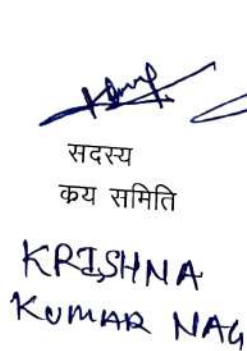 सदस्य
कय समिति
KRISHNA
KUMAR NAG